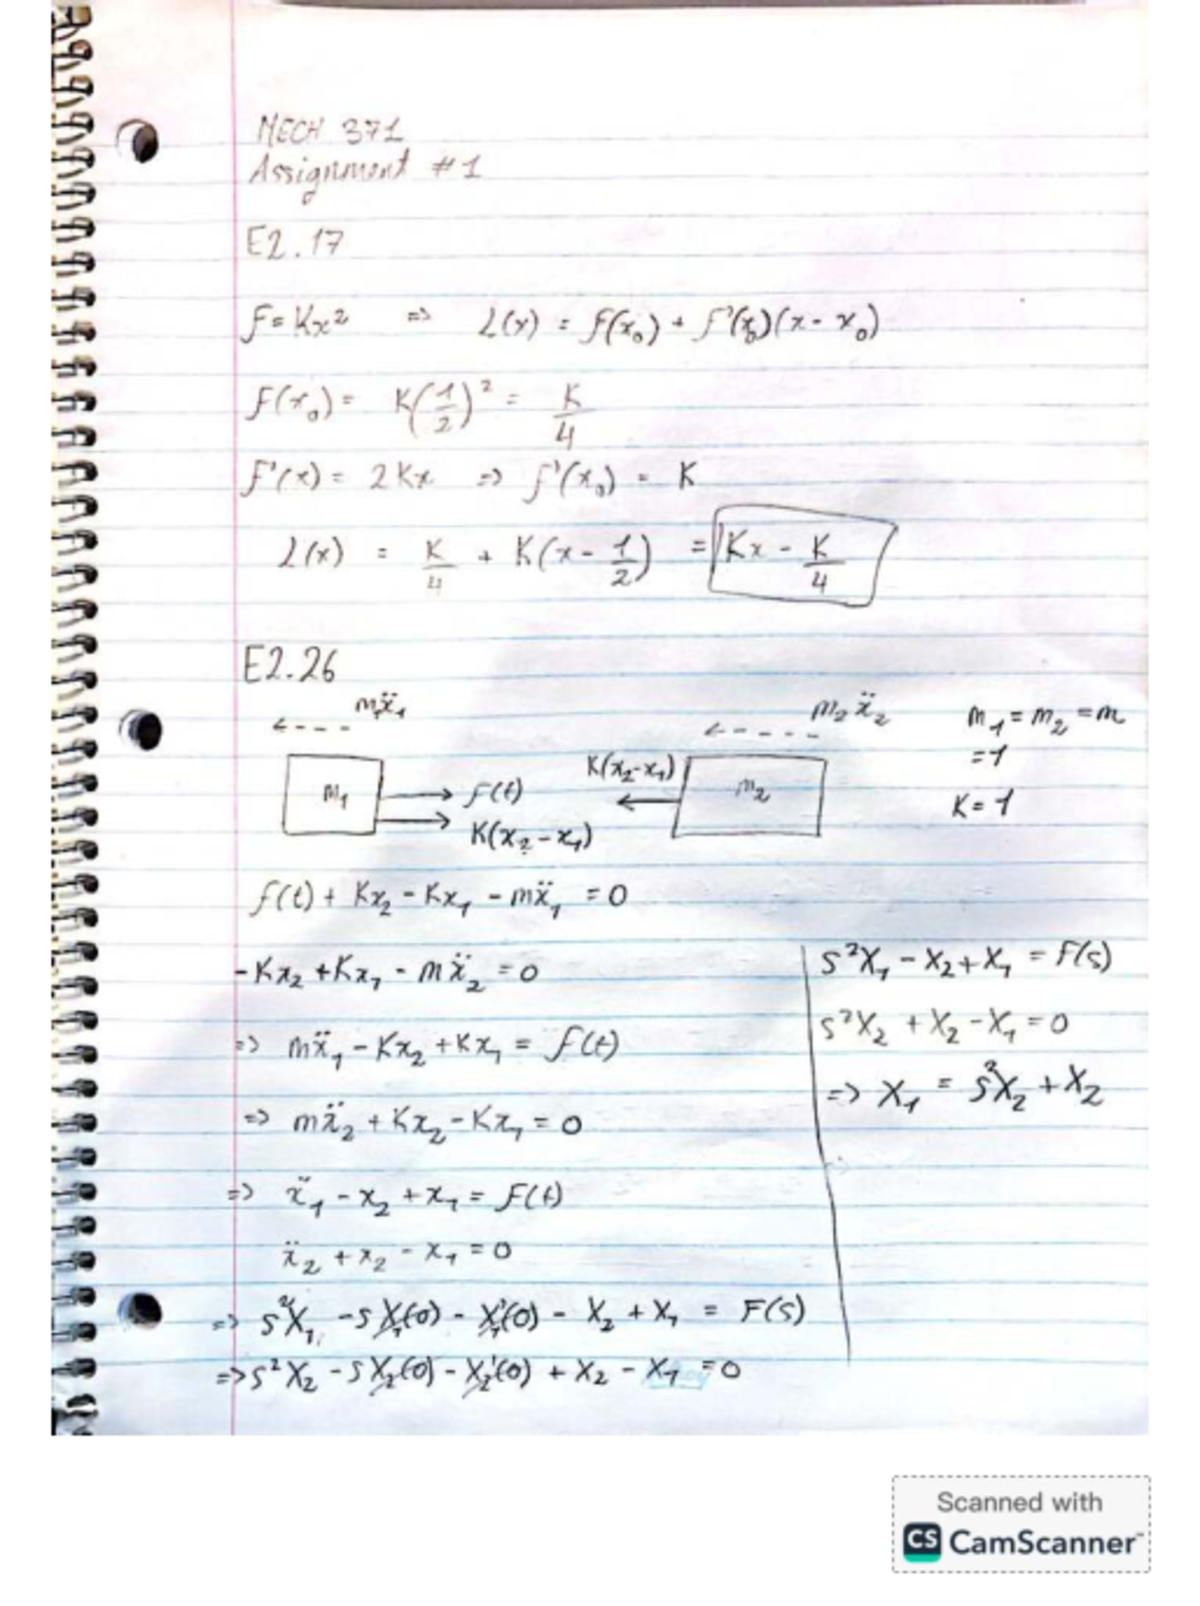 MECH 371
Assignment #1
E2.17
F = Kx² => L(x) = f(x₀) + f'(x₀)(x - x₀)
F(x₀) = K(1/2)² = K/4
F'(x) = 2Kx => f'(x₀) = K
L(x) = K/4 + K(x - 1/2) = Kx - K/4
E2.26
m₁ẍ₁
m₂ẍ₂
m₁ = m₂ = m
= 1
K = 1
m₁
f(t)
K(x₂ - x₁)
K(x₂-x₁)
m₂
f(t) + Kx₂ - Kx₁ - mẍ₁ = 0
-Kx₂ + Kx₁ - mẍ₂ = 0
=> mẍ₁ - Kx₂ + Kx₁ = f(t)
=> mẍ₂ + Kx₂ - Kx₁ = 0
=> ẍ₁ - x₂ + x₁ = F(t)
ẍ₂ + x₂ - x₁ = 0
=> s²X₁ - sX₁(0) - X₁'(0) - X₂ + X₁ = F(s)
=> s²X₂ - sX₂(0) - X₂'(0) + X₂ - X₁ = 0
s²X₁ - X₂ + X₁ = F(s)
s²X₂ + X₂ - X₁ = 0
=> X₁ = s²X₂ + X₂
Scanned with
CS CamScanner™